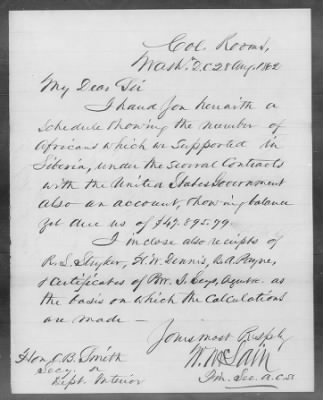 Col. Rooms,
Wash. D.C 28 Aug. 1862
My Dear Sir
I hand you herewith a
Schedule showing the number of
Africans which we supported in
Liberia, under the several Contracts
with the United States Government
also an account, showing balance
yet due us of $47,895.79.
I inclose also receipts of
R. L. Stryker, H. W. Dennis, B. A. Payne,
& Certificates of Rev. J. Seys, Agent &c. as
the basis on which the calculations
are made —
Yours most Respfly
W. McLain
Fin. Sec. A.C.S.
Hon. C. B. Smith
Secy. 
Dept. Interior